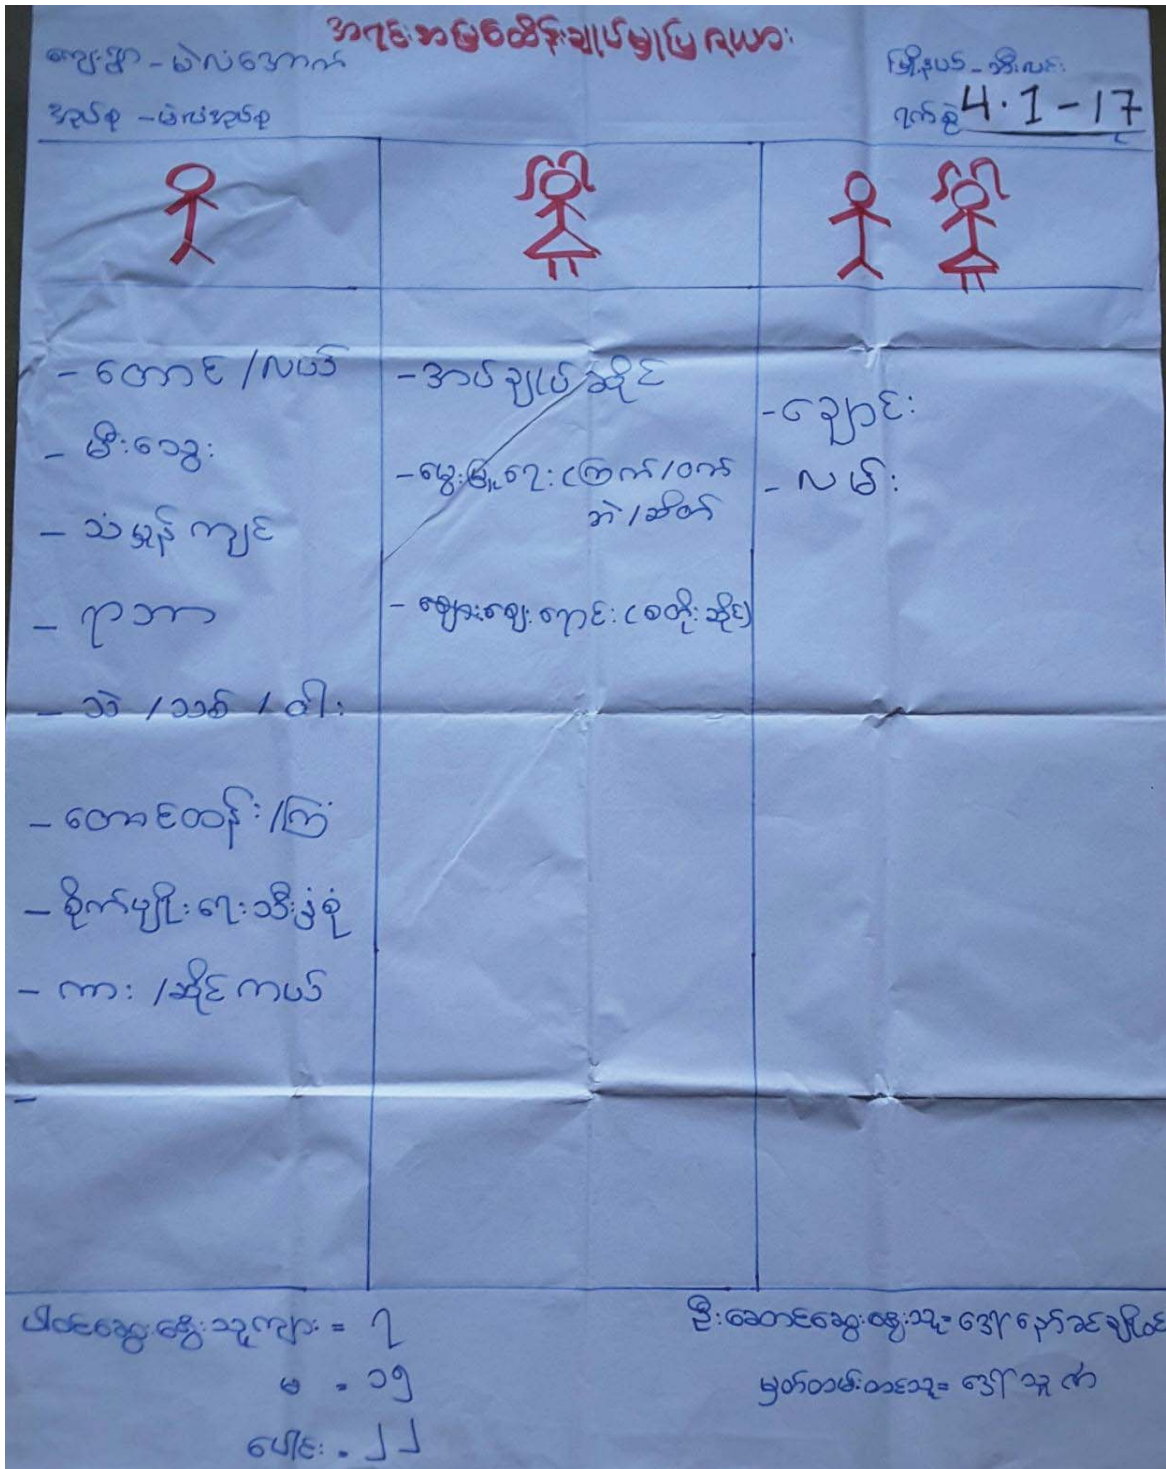 အရင်းအမြစ်ထိန်းချုပ်မှုပြဇယား
ကျေးရွာ - မဲလံအောက်
မြို့နယ် - သီးလင်း
အုပ်စု - မဲလံအုပ်စု
ရက်စွဲ 4.1-17
- တောင် /လယ်
- မီးသွေး
- သံမှုန် ကျင်
- ရာဘာ
- သဲ /သစ် / ဝါး
- တောင်ထန်း /ကြံ
- စိုက်ပျိုးရေးသီးနှံစုံ
- ကား /ဆိုင်ကယ်
-
- အပ်ချုပ်ဆိုင်
- မွေးမြူရေး (ကြက် /ဝက်
ဘဲ /ဆိတ်
- ဈေးရောင်း (စတိုးဆိုင်)
- ချောင်း
- လမ်း
ပါဝင်ဆွေးနွေးသူကျား = ၇
မ = ၁၅
ပေါင်း = ၂၂
ဦးဆောင်ဆွေးနွေးသူ= ဒေါ်နော်ခင်ချိုဝင်
မှတ်တမ်းတင်သူ= ဒေါ်သူဇာ